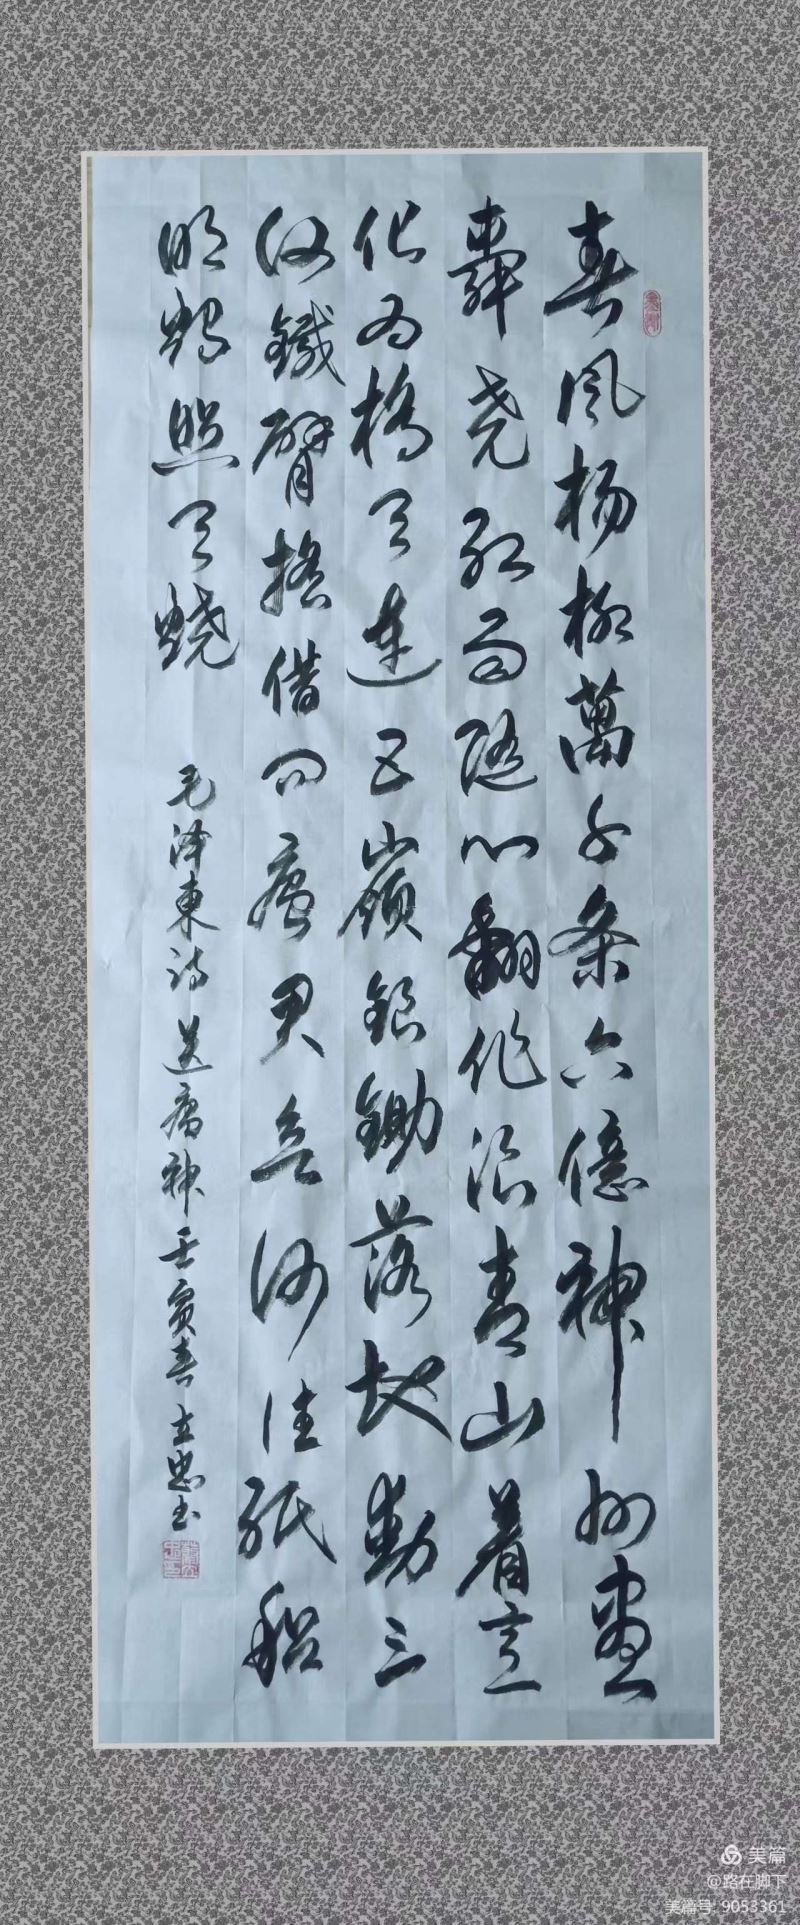 春风杨柳萬千条六億神州盡
舜尧红雨随心翻作浪青山着意
化为橋天連五嶺銀鋤落地動三
河鐵臂摇借问瘟君何往纸船
明燭照天燒
毛泽東诗送瘟神壬寅春立忠书
美篇
@路在脚下
美篇号: 9053361